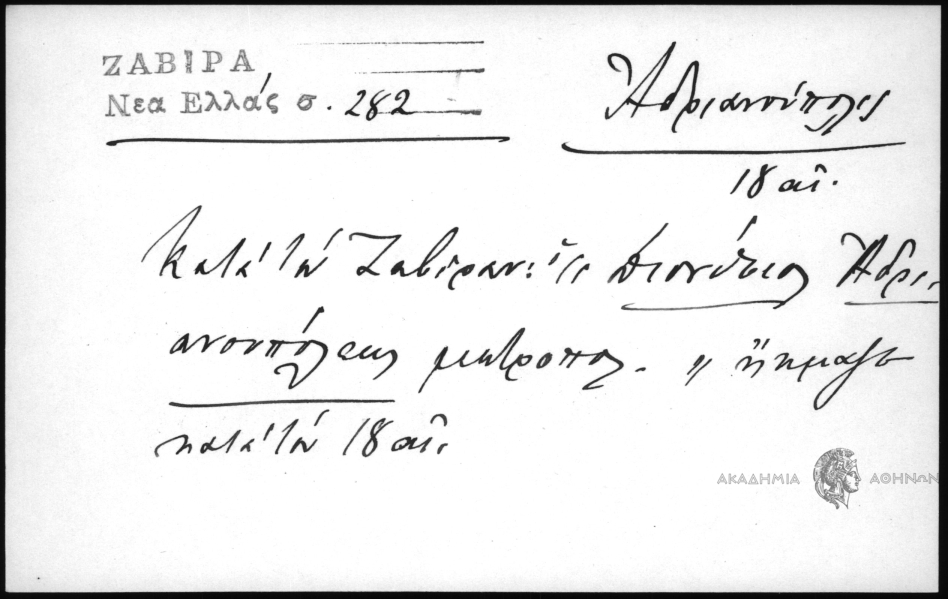 ΖΑΒΙΡΑ
Νεα Ελλάς σ. 282
Ἀδριανούπολις
18 αἰ.
Κατὰ τὸν Ζαβίραν: ὅτι Διονύσιος Ἀδρι-
ανουπόλεως μητροπολ. „ ἤκμαζε
κατὰ τὸν 18 αἰ.
ΑΚΑΔΗΜΙΑ ΑΘΗΝΩΝ